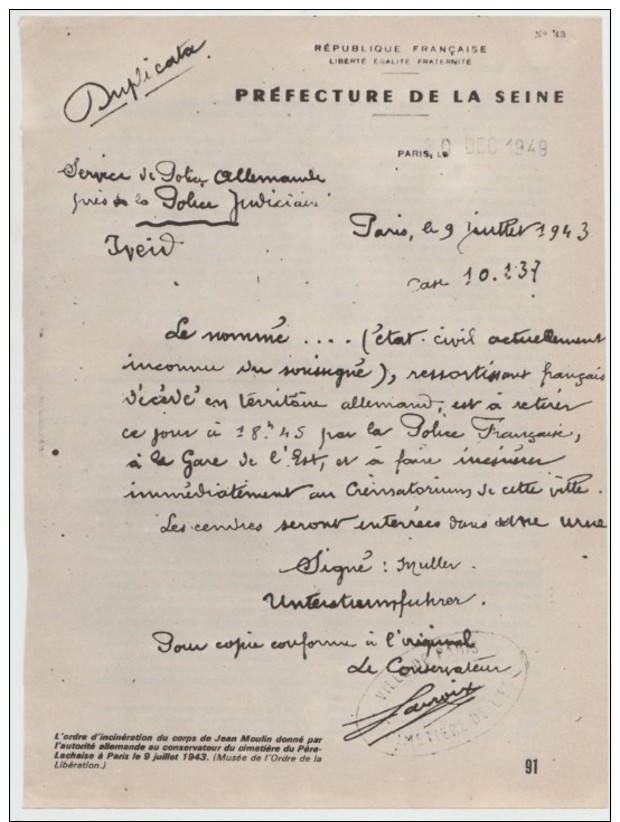 Duplicata
N° 43
RÉPUBLIQUE FRANÇAISE
LIBERTÉ EGALITÉ FRATERNITÉ
PRÉFECTURE DE LA SEINE
PARIS, LE 0 DEC 1949
Service de Police Allemande
près de la Police Judiciaire
Paris, le 9 juillet 1943
Case 10.137
Le nommé .... (état-civil actuellement
inconnu du soussigné), ressortissant français
décédé en territoire allemand, est à retirer
ce jour à 18h45 par la Police Française,
à la Gare de l'Est, et à faire incinérer
immédiatement au Crématorium de cette ville.
Les cendres seront enterrées dans une urne
Signé : Muller.
Untersturmfuhrer.
Pour copie conforme à l'original
Le Conservateur,
VILLE DE PARIS
METIERE DE L'ES
L'ordre d'incinération du corps de Jean Moulin donné par
l'autorité allemande au conservateur du cimetière du Père-
Lachaise à Paris le 9 juillet 1943. (Musée de l'Ordre de la
Libération.)
91